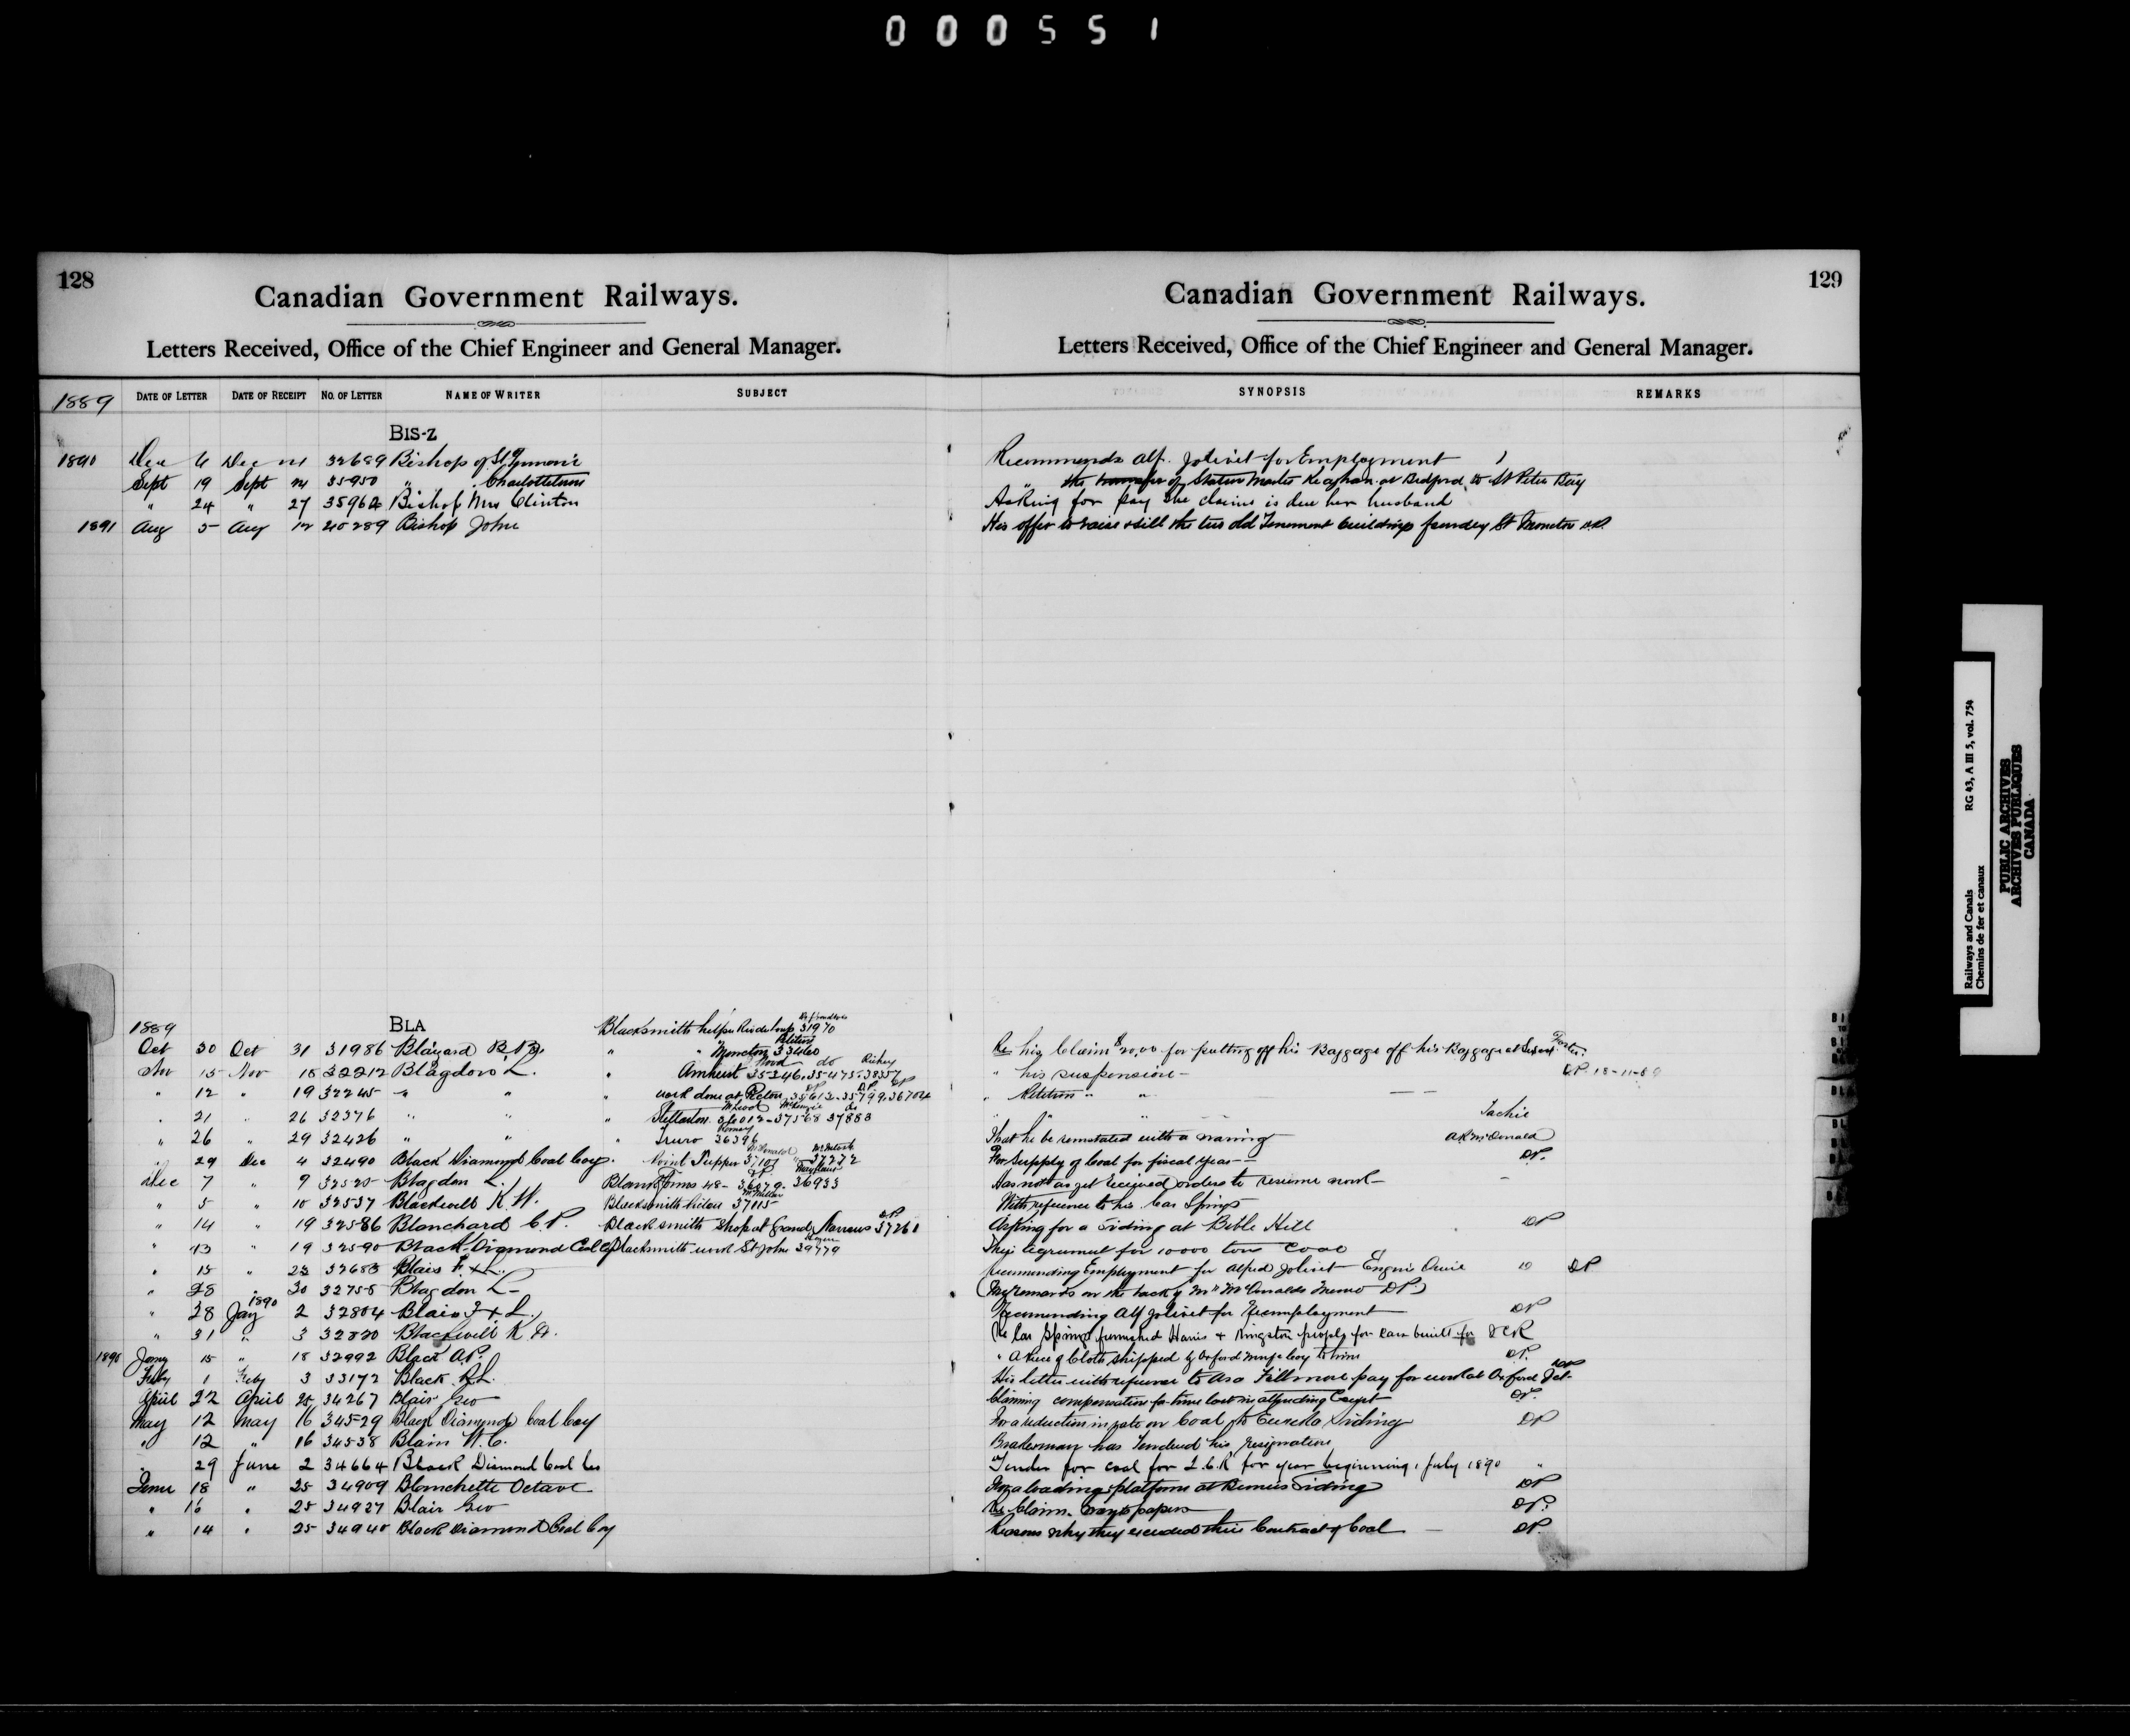 000551
128
Canadian Government Railways.
Letters Received, Office of the Chief Engineer and General Manager.
1889 DATE OF LETTER DATE OF RECEIPT NO. OF LETTER NAME OF WRITER SUBJECT
BIS-Z
1890 Dec 6 Dec 32689 Bishop of St
Sept 19 Sept 35950 " Charlottetown
" 24 " 27 35962 Bishop Mrs Clinton
1891 Aug 5 Aug 12 40289 Bishop John
1889 BLA Blacksmith helper 31970
Oct 30 Oct 31 31986 " " Moncton 33460
Nov 15 Nov 18 32212 Blagdon L. " Amherst 35246. 35475. 38357
" 12 " 19 32245 " " " work done at Pictou 35612. 35799. 36704
" 21 " 26 32376 " " " Stellarton 36012-37568 37883
" 26 " 29 32426 " " " Truro 36396
" 29 Dec 4 32490 Black Diamond Coal Coy. " Point Tupper 37101 " 37272
Dec 7 " 9 32520 Blagdon L. Blank Forms 48- 36879. 36933
" 5 " 10 32537 Blackwell K. W. Blacksmith Pictou 37115
" 14 " 19 32586 Blanchard C. P. Blacksmith Shop at Grand Narrows 37261
" 13 " 19 32590 Black Diamond Coal Co Blacksmith work St John 39779
" 15 " 23 32683 Blais F. & L.
" 28 " 30 32755 Blagdon L
" 28 Jany 1890 2 32804 Blais F & L.
" 31 " 3 32820 Blackwell K W.
1890 Jany 15 " 18 32992 Black A.P.
Feby 1 Feby 3 33172 Black R L.
April 22 April 25 34267 Blair Geo
May 12 May 16 34529 Black Diamond Coal Coy
" 12 " 16 34538 Blain W. C.
" 29 June 2 34664 Black Diamond Coal Co
June 18 " 25 34909 Blanchette Octave
" 16 " 25 34927 Blair Geo
" 14 " 25 34940 Black Diamond Coal Coy
129
Canadian Government Railways.
Letters Received, Office of the Chief Engineer and General Manager.
SYNOPSIS REMARKS
Recommends Alf. Jolivet for Employment
" the transfer of Station Master at Bedford to St Peters Bay
Asking for pay she claims is due her husband
His offer to raise & sill the two old Tenement buildings foundry St Moncton
Re his Claim $20.00 for putting off his Baggage off his Baggage at
" his suspension - DP. 18-11-89
" Petition " "
" " Tachie
That he be reinstated with a warning A R McDonald
For Supply of Coal for fiscal Year DP.
Has not as yet received orders to resume work -
With reference to his Car Springs
Asking for a siding at Bible Hill DP
Their Agreement for 10000 tons Coal
recommending Employment for Alfred Jolivet DP
(My remarks on the back of Mr McDonalds Memo DP.)
Recommending Alf Jolivet for Reemployment DP
Re Car Springs furnished Harris & Kingston people for cars built for ICR
" A Piece of Cloth shipped by Oxford Coy to him DP.
His letter with reference to Asa Fillmore pay for work at Oxford Jct. DP
Claiming compensation for time lost in attending Court DP.
For a reduction in rate on Coal to Eureka Siding DP
Brakeman has Tendered his resignation
Tender for coal for I.C.R for year beginning 1 July 1890 "
For a loading platform at Siding DP
Re Claim. papers DP.
Reasons why they exceeded their Contract of Coal - DP.
Railways and Canals RG 43, A III 5, vol. 754
Chemins de fer et canaux
PUBLIC ARCHIVES
ARCHIVES PUBLIQUES
CANADA